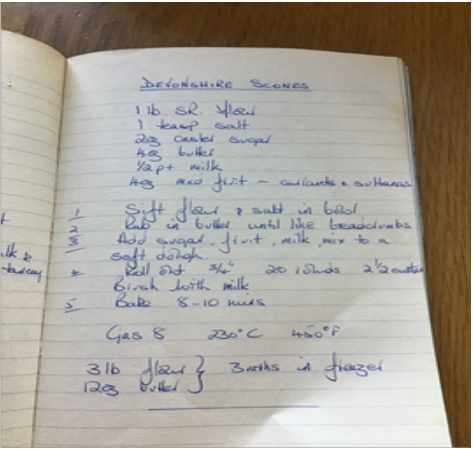 DEVONSHIRE SCONES
1 lb. SR. flour
1 teasp salt
2oz caster sugar
4oz butter
1/2 pt milk
4oz mxd fruit - currants & sultanas
1 Sift flour & salt in bowl
2 Rub in butter until like breadcrumbs
3 Add sugar, fruit, milk, mix to a
soft dough.
Roll out 3/4" 20 rounds 2 1/2 cutter
Brush with milk
5 Bake 8-10 mins
Gas 8 230°C 450°F
3 lb flour } 3 mths in freezer
12oz butter